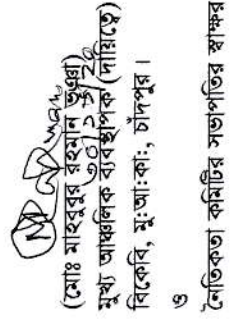 (মোঃ মাহবুবুর রহমান ভূঞা)
মুখ্য আঞ্চলিক ব্যবস্থাপক (দায়িত্বে)
বিকেবি, মুঃআঃকাঃ, চাঁদপুর।
ও
নৈতিকতা কমিটির সভাপতির স্বাক্ষর